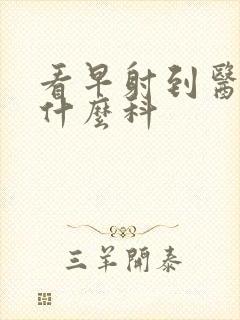 看早射到醫
什麼科
三羊開泰